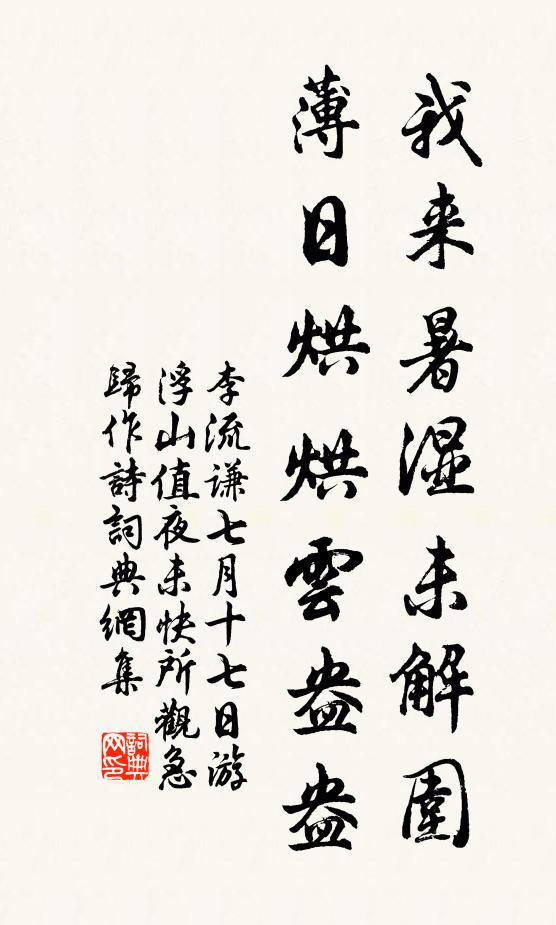 我来暑湿未解圍
薄日烘烘雲盎盎
李流謙七月十七日游
浮山值夜未快所觀急
歸作詩詞典網集
詞典网印